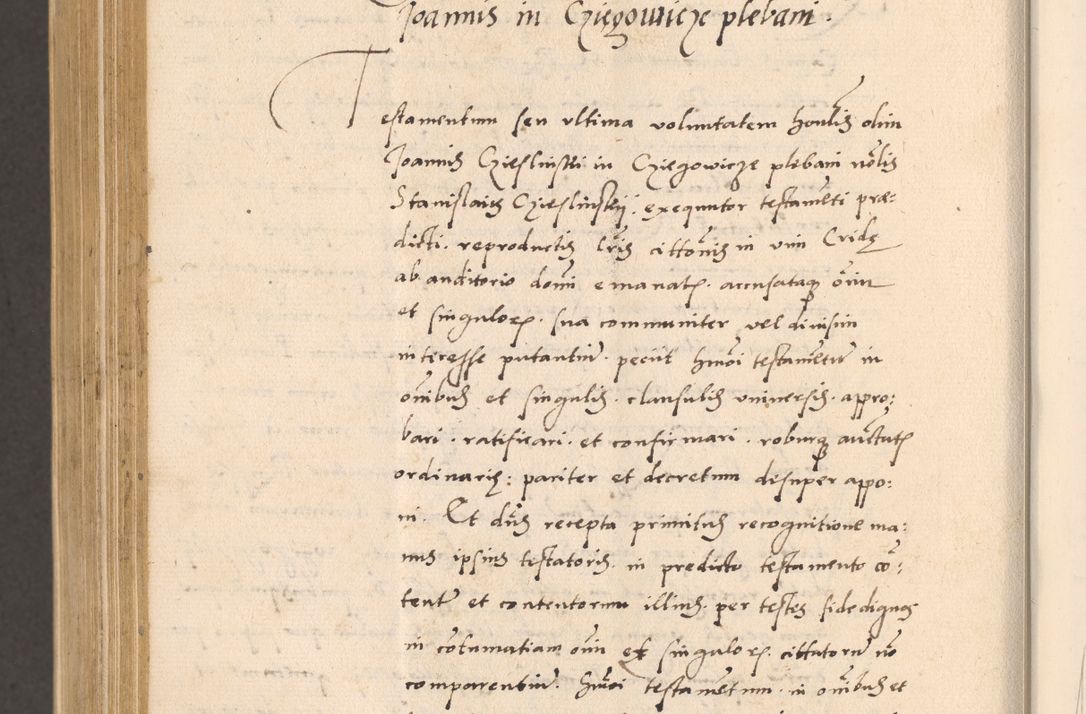 Joannis in Cziegowicze plebani.
Testamentum seu ultima voluntatem honlis olim
Joannis Czieslinski in Cziegowicze plebani nolis
Stanislaus Czieslinskij, exequutor testameti præ:
dicti. reproductis lris cittonis in vim Cridę
ab auditorio domi emanatꝝ. accusataqꝫ oim
et singuloꝝ. sua communiter vel divisim
interesse putantiu. peciit hmoi testametu in
oibus et singulis. clausulis universis. appro:
bari. ratificari. et confirmari. roburqꝫ auctatꝭ
ordinarię: pariter et decretum desuper appo:
ni. Et dus recepta primitus recognitione ma:
nus ipsius testatoris. in predicto testamento co:
tentꝭ et contentorum illius. per testes fidedignos
in cotumatiam oim et singuloꝝ. cittatoru no
comparentiu. hmoi testametum. in oibus et